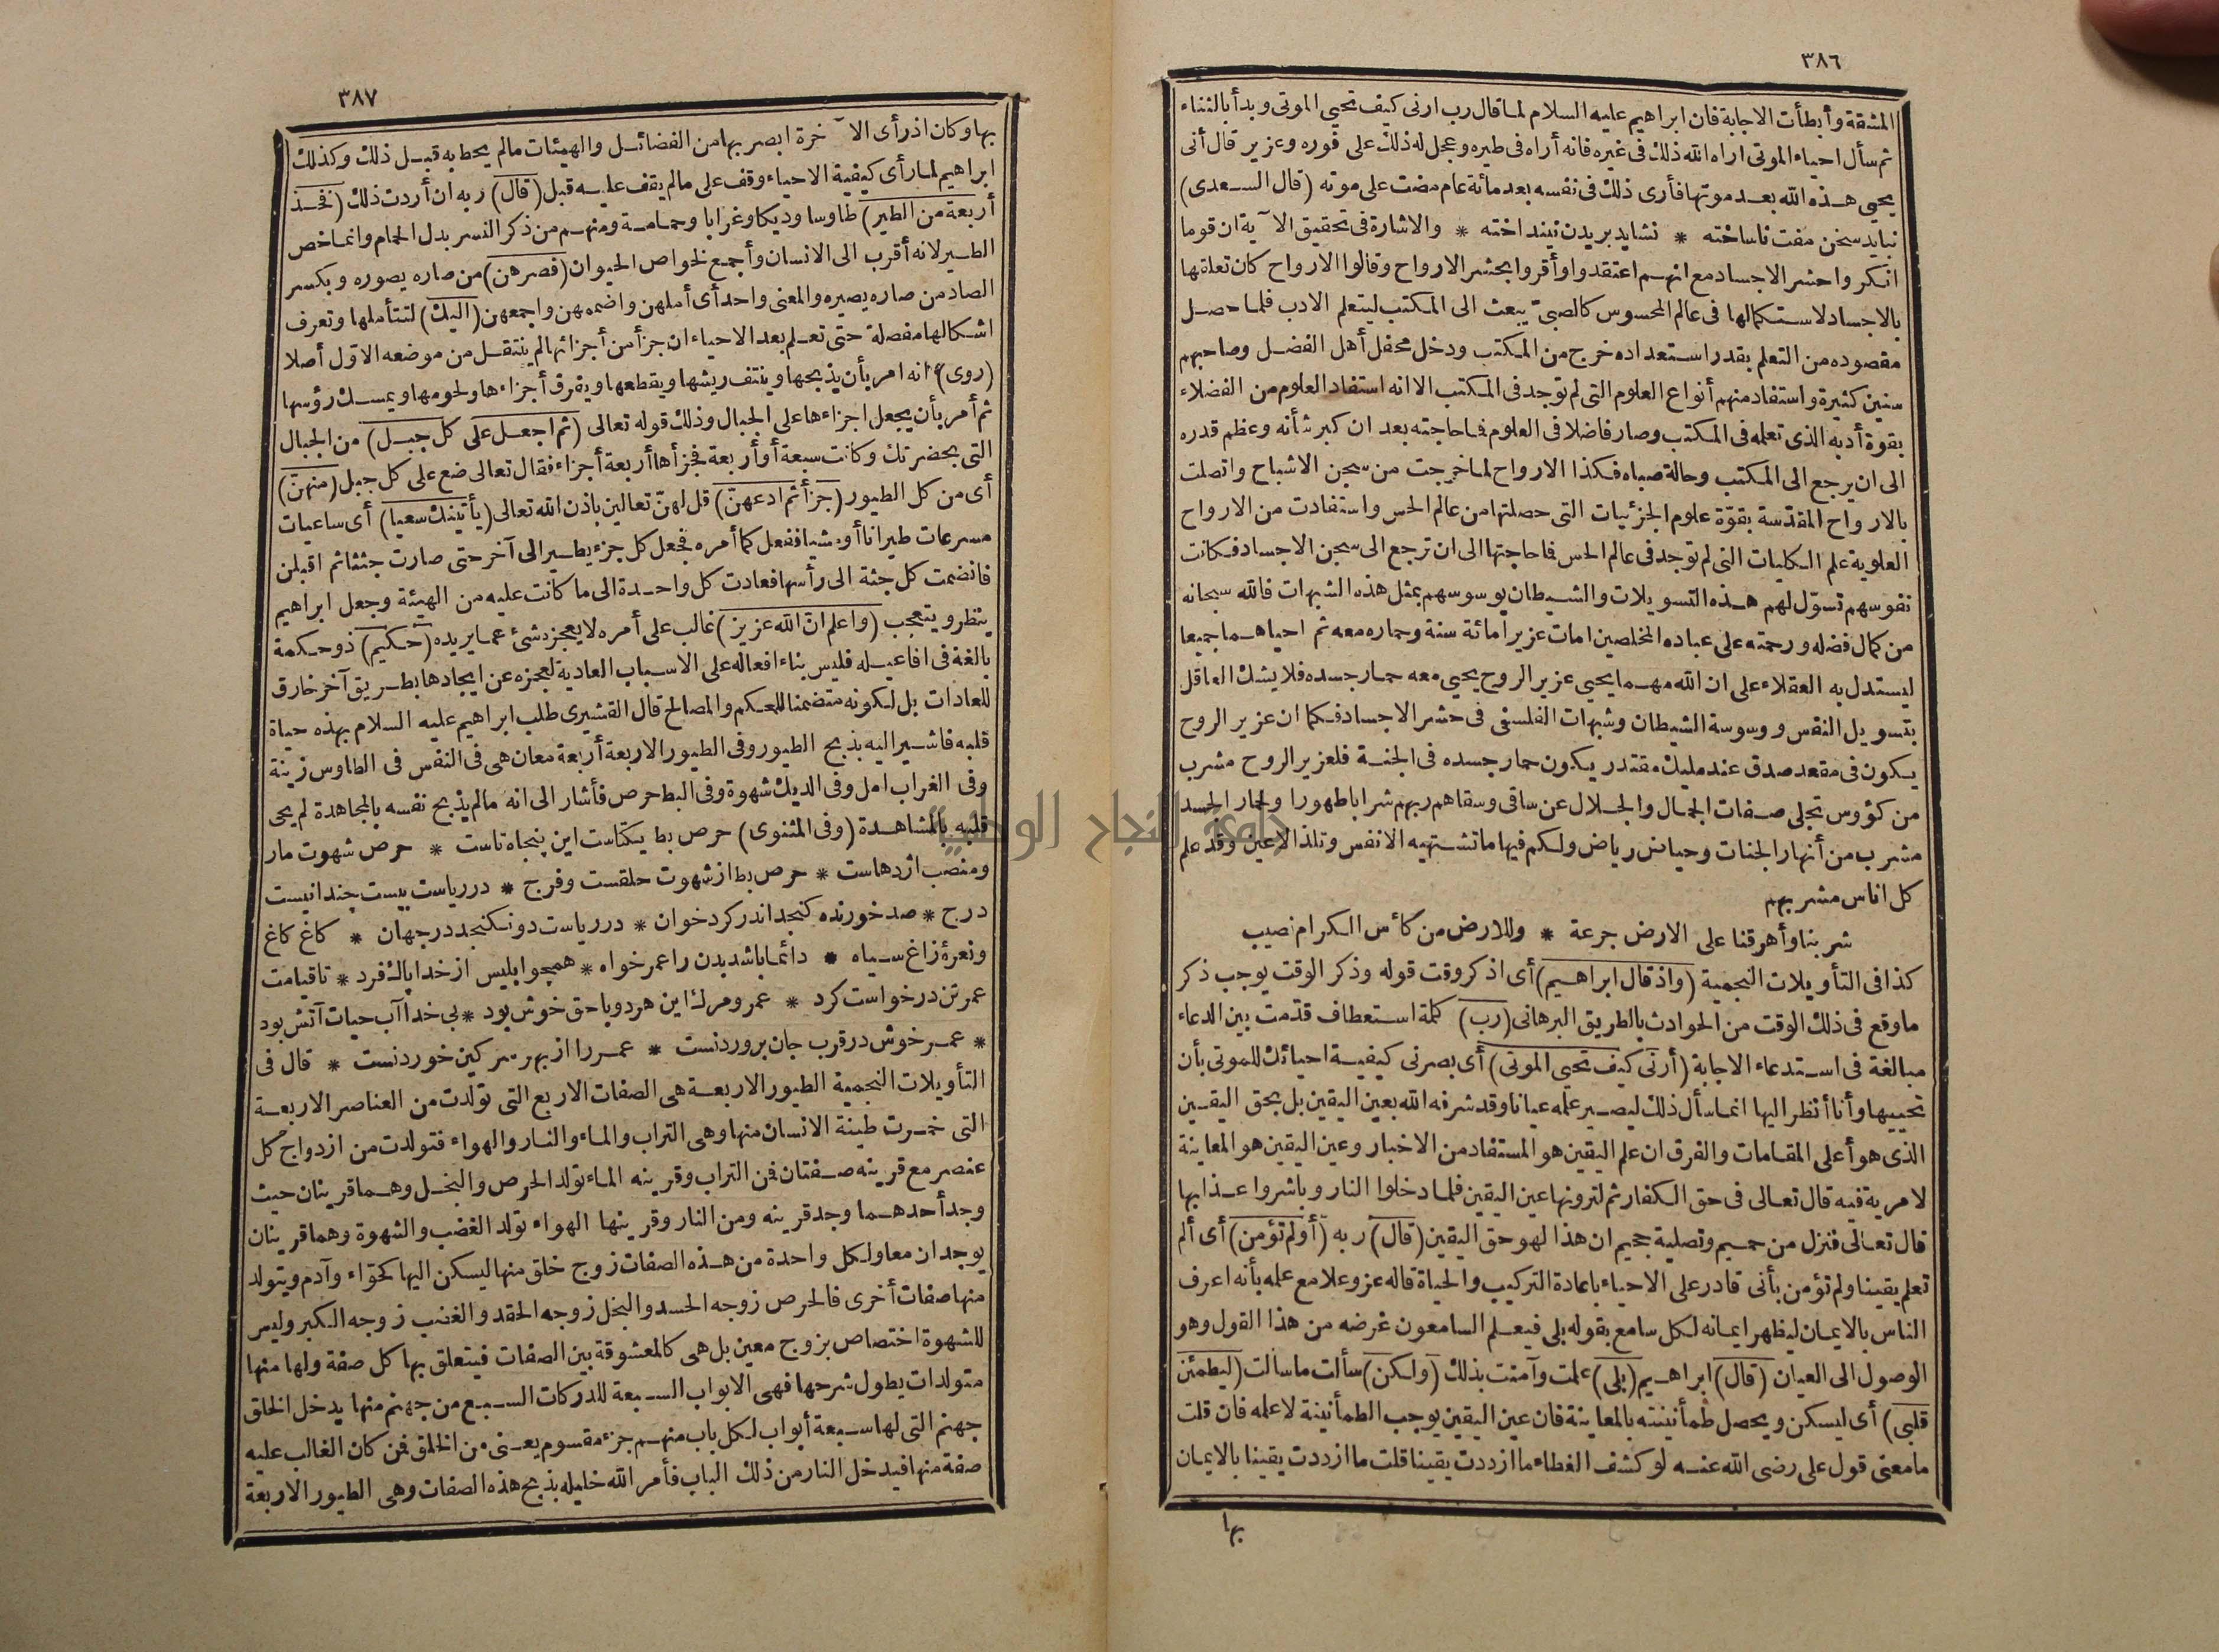 ٣٨٦
المشقة وأبطأت الاجابة فان ابراهيم عليه السلام لما قال رب ارنى كيف تحيي الموتى وبدأ بالثناء
ثم سأل احياء الموتى اراه الله ذلك فى غيره فانه أراه فى طيره وعجل له ذلك على فوره وعزير قال أنى
يحيى هذه الله بعد موتها فأرى ذلك فى نفسه بعد مائة عام مضت على موته (قال السعدى)
نبايد سخن مفت ناساخته * نشايد بريدن نينداخته * والاشارة فى تحقيق الآية ان قوما
انكروا حشر الاجساد مع انهم اعتقدوا وأقروا بحشر الارواح وقالوا الارواح كان تعلقها
بالاجساد لاستكمالها فى عالم المحسوس كالصبىّ يبعث الى المكتب ليتعلم الادب فلما حصل
مقصوده من التعلم بقدر استعداده خرج من المكتب ودخل محفل أهل الفضل وصاحبهم
سنين كثيرة واستفاد منهم أنواع العلوم التى لم توجد فى المكتب الا انه استفاد العلوم من الفضلاء
بقوة أدبه الذى تعلمه فى المكتب وصار فاضلا فى العلوم فما حاجته بعد ان كبر شأنه وعظم قدره
الى ان يرجع الى المكتب وحالة صباه فكذا الارواح لما خرجت من سجن الاشباح واتصلت
بالارواح المقدّسة بقوّة علوم الجزئيات التى حصلتها من عالم الحس واستفادت من الارواح
العلوية علم الكليات التى لم توجد فى عالم الحس فما حاجتها الى ان ترجع الى سجن الاجساد فكانت
نفوسهم تسوّل لهم هذه التسويلات والشيطان يوسوسهم بمثل هذه الشبهات فالله سبحانه
من كمال فضله ورحمته على عباده المخلصين امات عزيرا مائة سنة وحماره معه ثم احياهما جميعا
ليستدل به العقلاء على ان الله مهما يحيى عزير الروح يحيى معه حمار جسده فلا يشك العاقل
بتسويل النفس ووسوسة الشيطان وشبهات الفلسفى فى حشر الاجساد فكما ان عزير الروح
يكون فى مقعد صدق عند مليك مقتدر يكون حمار جسده فى الجنة فلعزير الروح مشرب
من كؤوس تجلى صفات الجمال والجلال عن ساقى وسقاهم ربهم شرابا طهورا ولحمار الجسد
مشرب من أنهار الجنات وحياض رياض ولكم فيها ما تشتهيه الانفس وتلذ الاعين وقد علم
كل اناس مشربهم
شربنا وأهرقنا على الارض جرعة * وللارض من كأس الكرام نصيب
كذا فى التأويلات النجمية (واذ قال ابراهيم) أى اذكر وقت قوله وذكر الوقت يوجب ذكر
ما وقع فى ذلك الوقت من الحوادث بالطريق البرهانى (رب) كلمة استعطاف قدّمت بين الدعاء
مبالغة فى استدعاء الاجابة (أرنى كيف تحيى الموتى) أى بصرنى كيفية احيائك للموتى بأن
تحييها وأنا أنظر اليها انما سأل ذلك ليصير علمه عيانا وقد شرفه الله بعين اليقين بل بحق اليقين
الذى هو أعلى المقامات والفرق ان علم اليقين هو المستفاد من الاخبار وعين اليقين هو المعاينة
لا مرية فيه قال تعالى فى حق الكفار ثم لترونها عين اليقين فلما دخلوا النار وباشروا عذابها
قال تعالى فنزل من حميم وتصلية جحيم ان هذا لهو حق اليقين (قال) ربه (أولم تؤمن) أى ألم
تعلم يقينا ولم تؤمن بأنى قادر على الاحياء باعادة التركيب والحياة قاله عز وعلا مع علمه بأنه اعرف
الناس بالايمان ليظهر ايمانه لكل سامع بقوله بلى فيعلم السامعون غرضه من هذا القول وهو
الوصول الى العيان (قال) ابراهيم (بلى) علمت وآمنت بذلك (ولكن) سألت ما سألت (ليطمئن
قلبى) أى ليسكن ويحصل طمأنينته بالمعاينة فان عين اليقين يوجب الطمأنينة لا علمه فان قلت
ما معنى قول على رضى الله عنه لو كشف الغطاء ما ازددت يقينا قلت ما ازددت يقينا بالايمان
بها
٣٨٧
بها وكان اذ رأى الآخرة ابصر بها من الفضائل والهيئات ما لم يحط به قبل ذلك وكذلك
ابراهيم لما رأى كيفية الاحياء وقف على ما لم يقف عليه قبل (قال) ربه ان أردت ذلك (فخذ
أربعة من الطير) طاوسا وديكا وغرابا وحمامة ومنهم من ذكر النسر بدل الحمام وانما خص
الطير لانه أقرب الى الانسان وأجمع لخواص الحيوان (فصرهن) من صاره يصوره وبكسر
الصاد من صاره يصيره والمعنى واحد أى أملهن واضممهن واجمعهن (اليك) لتتأملها وتعرف
اشكالها مفصلة حتى تعلم بعد الاحياء ان جزأ من أجزائها لم ينتقل من موضعه الاوّل أصلا
(روى) انه امر بأن يذبحها وينتف ريشها ويقطعها ويفرق أجزاءها ولحومها ويمسك رؤسها
ثم أمر بأن يجعل اجزاءها على الجبال وذلك قوله تعالى (ثم اجعل على كل جبل) من الجبال
التى بحضرتك وكانت سبعة أو أربعة فجزأها أربعة أجزاء فقال تعالى ضع على كل جبل (منهنّ)
أى من كل الطيور (جزأ ثم ادعهنّ) قل لهنّ تعالين باذن الله تعالى (يأتينك سعيا) أى ساعيات
مسرعات طيرانا أو مشيا ففعل كما أمره فجعل كل جزء يطير الى آخر حتى صارت جثثا ثم اقبلن
فانضمت كل جثة الى رأسها فعادت كل واحدة الى ما كانت عليه من الهيئة وجعل ابراهيم
ينظر ويتعجب (واعلم انّ الله عزيز) غالب على أمره لا يعجزه شئ عما يريده (حكيم) ذو حكمة
بالغة فى افاعيله فليس بناء افعاله على الاسباب العادية لعجزه عن ايجادها بطريق آخر خارق
للعادات بل لكونه متضمنا للحكم والمصالح قال القشيرى طلب ابراهيم عليه السلام بهذه حياة
قلبه فاشير اليه بذبح الطيور وفى الطيور الاربعة أربعة معان هى فى النفس فى الطاوس زينة
وفى الغراب امل وفى الديك شهوة وفى البط حرص فأشار الى انه ما لم يذبح نفسه بالمجاهدة لم يحى
قلبه بالمشاهدة (وفى المثنوى) حرص بط يكتاست اين پنجاه تاست * حرص شهوت مار
ومنصب اژدهاست * حرص بط از شهوت حلقست وفرج * در رياست بيست چندانيست
درج * صد خورنده كنجد اندر كرد خوان * در رياست دو نكنجد در جهان * كاغ كاغ
ونعرهٔ زاغ سياه * دائما باشد بدن را عمر خواه * همچو ابليس از خدا پاك فرد * تا قيامت
عمر تن درخواست كرد * عمر ومرك اين هر دو با حق خوش بود * بى خدا آب حيات آتش بود
* عمر خوش در قرب جان پروردنست * عمر را از بهر سركين خوردنست * قال فى
التأويلات النجمية الطيور الاربعة هى الصفات الاربع التى تولدت من العناصر الاربعة
التى خمرت طينة الانسان منها وهى التراب والماء والنار والهواء فتولدت من ازدواج كل
عنصر مع قرينه صفتان فمن التراب وقرينه الماء تولد الحرص والبخل وهما قرينان حيث
وجد أحدهما وجد قرينه ومن النار وقرينها الهواء تولد الغضب والشهوة وهما قرينان
يوجدان معا ولكل واحدة من هذه الصفات زوج خلق منها ليسكن اليها كحوّاء وآدم ويتولد
منها صفات أخرى فالحرص زوجه الحسد والبخل زوجه الحقد والغضب زوجه الكبر وليس
للشهوة اختصاص بزوج معين بل هى كالمعشوقة بين الصفات فيتعلق بها كل صفة ولها منها
متولدات يطول شرحها فهى الابواب السبعة للدركات السبع من جهنم منها يدخل الخلق
جهنم التى لها سبعة أبواب لكل باب منهم جزء مقسوم يعنى من الخلق فمن كان الغالب عليه
صفة منها فيدخل النار من ذلك الباب فأمر الله خليله بذبح هذه الصفات وهى الطيور الاربعة
جامعة النجاح الوطنية